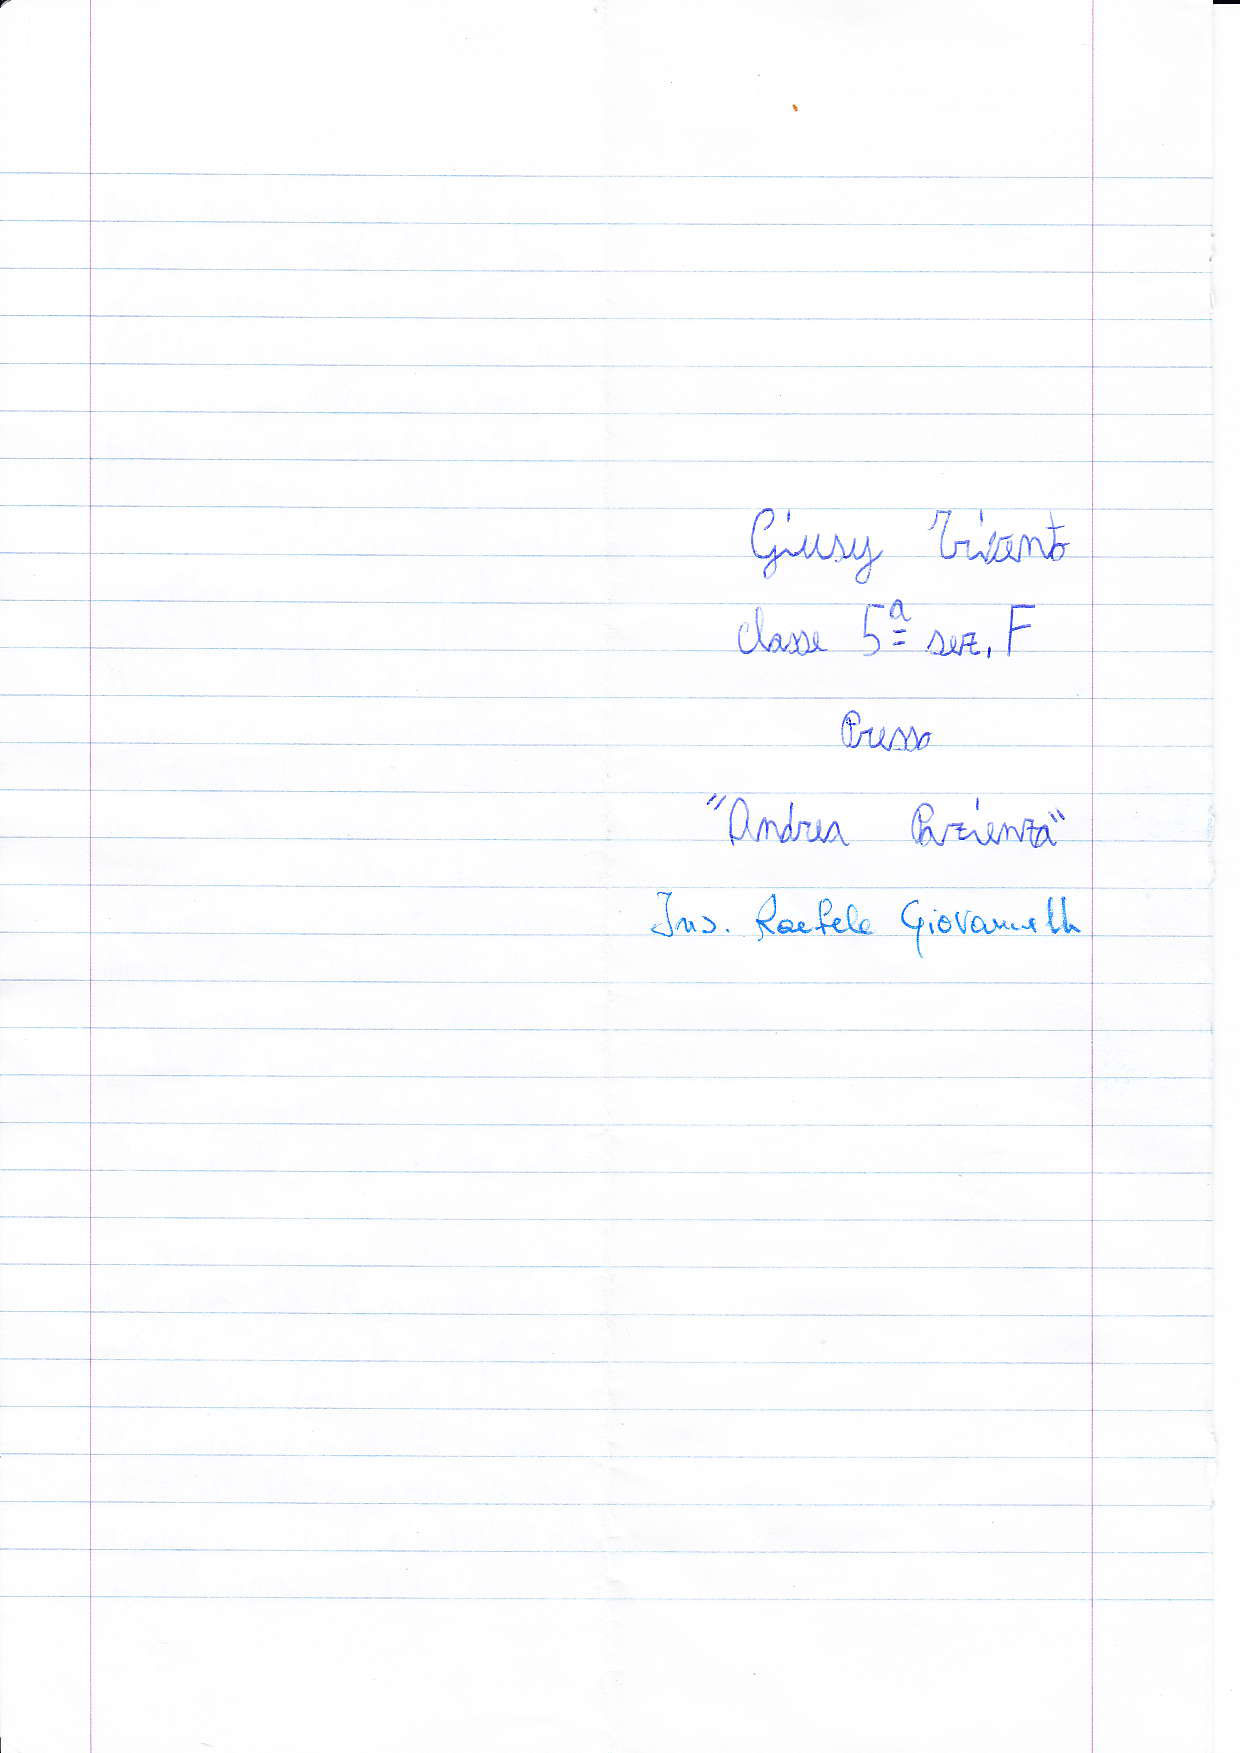 Giusy Tricant
classe 5ª sez. F
Presso
"Andrea Pazienza"
Ins. Raefele Giovannelli